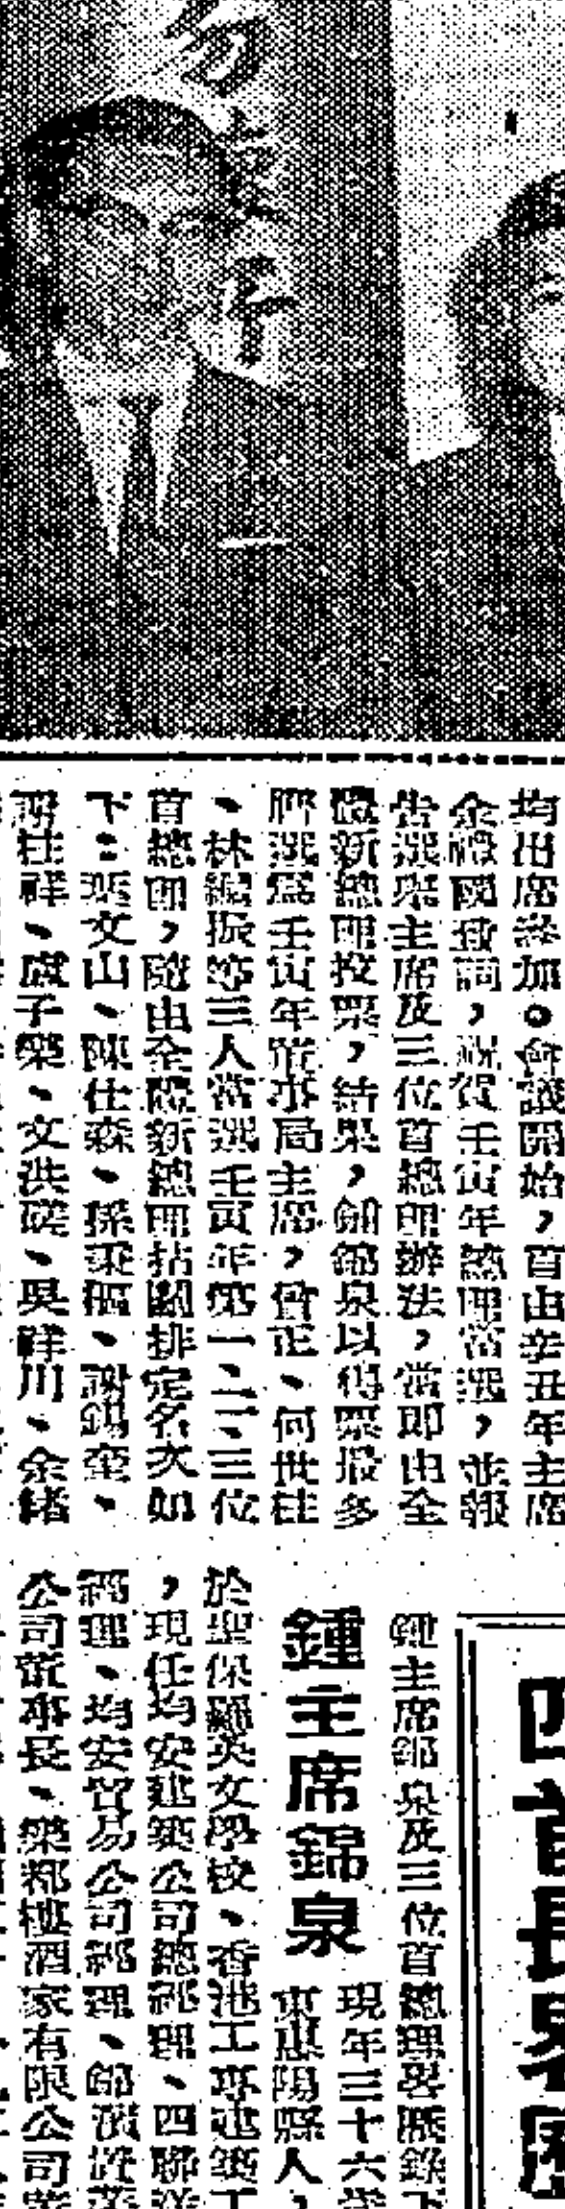 均出席參加。會議開始，首由辛丑年主席
余祿國致詞，祝賀壬寅年總理當選，並報
告選舉主席及三位首總理辦法，當即由全
院新總理投票，結果，鍾錦泉以得票最多
膺選爲壬寅年董事局主席，曾正、何世柱
、林繼振等三人當選壬寅年第一、二、三位
首總理，隨由全院新總理拈鬮排定名次如
下：葉文山、陳仕森、孫秉樞、謝錫奎、
桂祥、盧子樂、文洪磋、吳祥川、余緒
四首長畧歷
鍾主席錦泉及三位首總理畧歷錄下
鍾主席錦泉
現年三十六歲
東惠陽縣人，
於聖保羅英文學校、香港工專建築工
，現任均安建築公司總經理、四聯洋
經理、均安貿易公司經理、
公司董事長、樂都樓酒家有限公司董